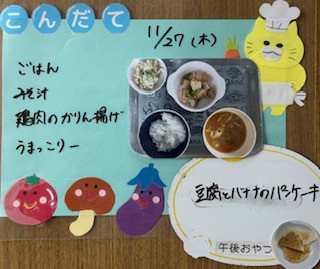 こんだて
11/27(木)
ごはん
みそ汁
鶏肉のかりん揚げ
うまっこりー
豆腐とバナナのパンケーキ
午後おやつ